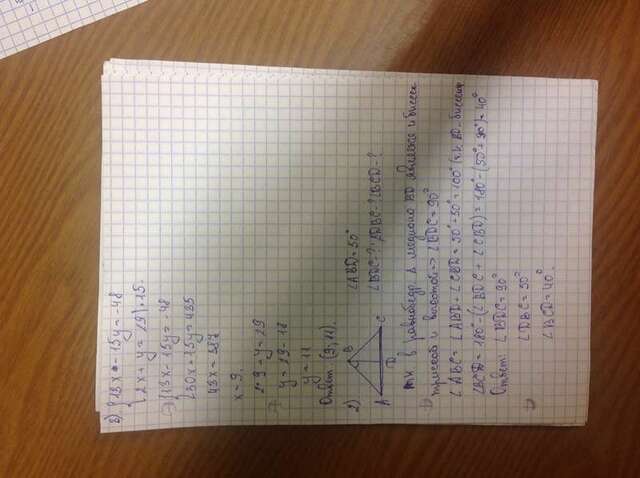 в) { 13x - 15y = -48
{ 2x + y = 29 | · 15
⇒ { 13x - 15y = -48
{ 30x + 15y = 435
43x = 387
x = 9.
2 · 9 + y = 29
⇒ y = 29 - 18
y = 11
Ответ: (9; 11).
2) ∠ABD = 50°
B
A D C
∠BDC - ? ∠DBC - ? ∠BCD - ?
тк в равнобедр Δ медиана BD является и биссек
трисой и высотой => ∠BDC = 90°
∠ABC = ∠ABD + ∠CBD = 50° + 50° = 100° (т.к. BD - биссектр
∠BCD = 180° - (∠BDC + ∠CBD) = 180° - (50° + 90°) = 40°
Ответ: ∠BDC = 90°
∠DBC = 50°
∠BCD = 40°.